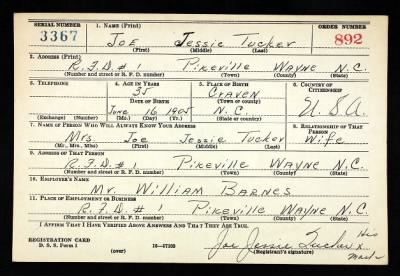 SERIAL NUMBER 1. NAME (Print) ORDER NUMBER
3367 JOE Jessie Tucker 892
(First) (Middle) (Last)
2. ADDRESS (Print)
R.F.D. # 1 Pikeville WAYNE N.C.
(Number and street or R. F. D. number) (Town) (County) (State)
3. TELEPHONE 4. AGE IN YEARS 5. PLACE OF BIRTH 6. COUNTRY OF CITIZENSHIP
35 CRAVEN
DATE OF BIRTH (Town or county)
June 16 1905 N.C. U.S.A.
(Exchange) (Number) (Mo.) (Day) (Yr.) (State or country)
7. NAME OF PERSON WHO WILL ALWAYS KNOW YOUR ADDRESS 8. RELATIONSHIP OF THAT PERSON
Mrs. Joe Jessie Tucker Wife
(Mr., Mrs., Miss) (First) (Middle) (Last)
9. ADDRESS OF THAT PERSON
R.F.D. # 1 Pikeville WAYNE N.C.
(Number and street or R. F. D. number) (Town) (County) (State)
10. EMPLOYER'S NAME
Mr. William BARNES
11. PLACE OF EMPLOYMENT OR BUSINESS
R.F.D. # 1 Pikeville WAYNE N.C.
(Number and street or R. F. D. number) (Town) (County) (State)
I AFFIRM THAT I HAVE VERIFIED ABOVE ANSWERS AND THAT THEY ARE TRUE.
REGISTRATION CARD
D. S. S. Form 1 (over) 16—17105 Joe Jessie Tucker His x Mark
(Registrant's signature)